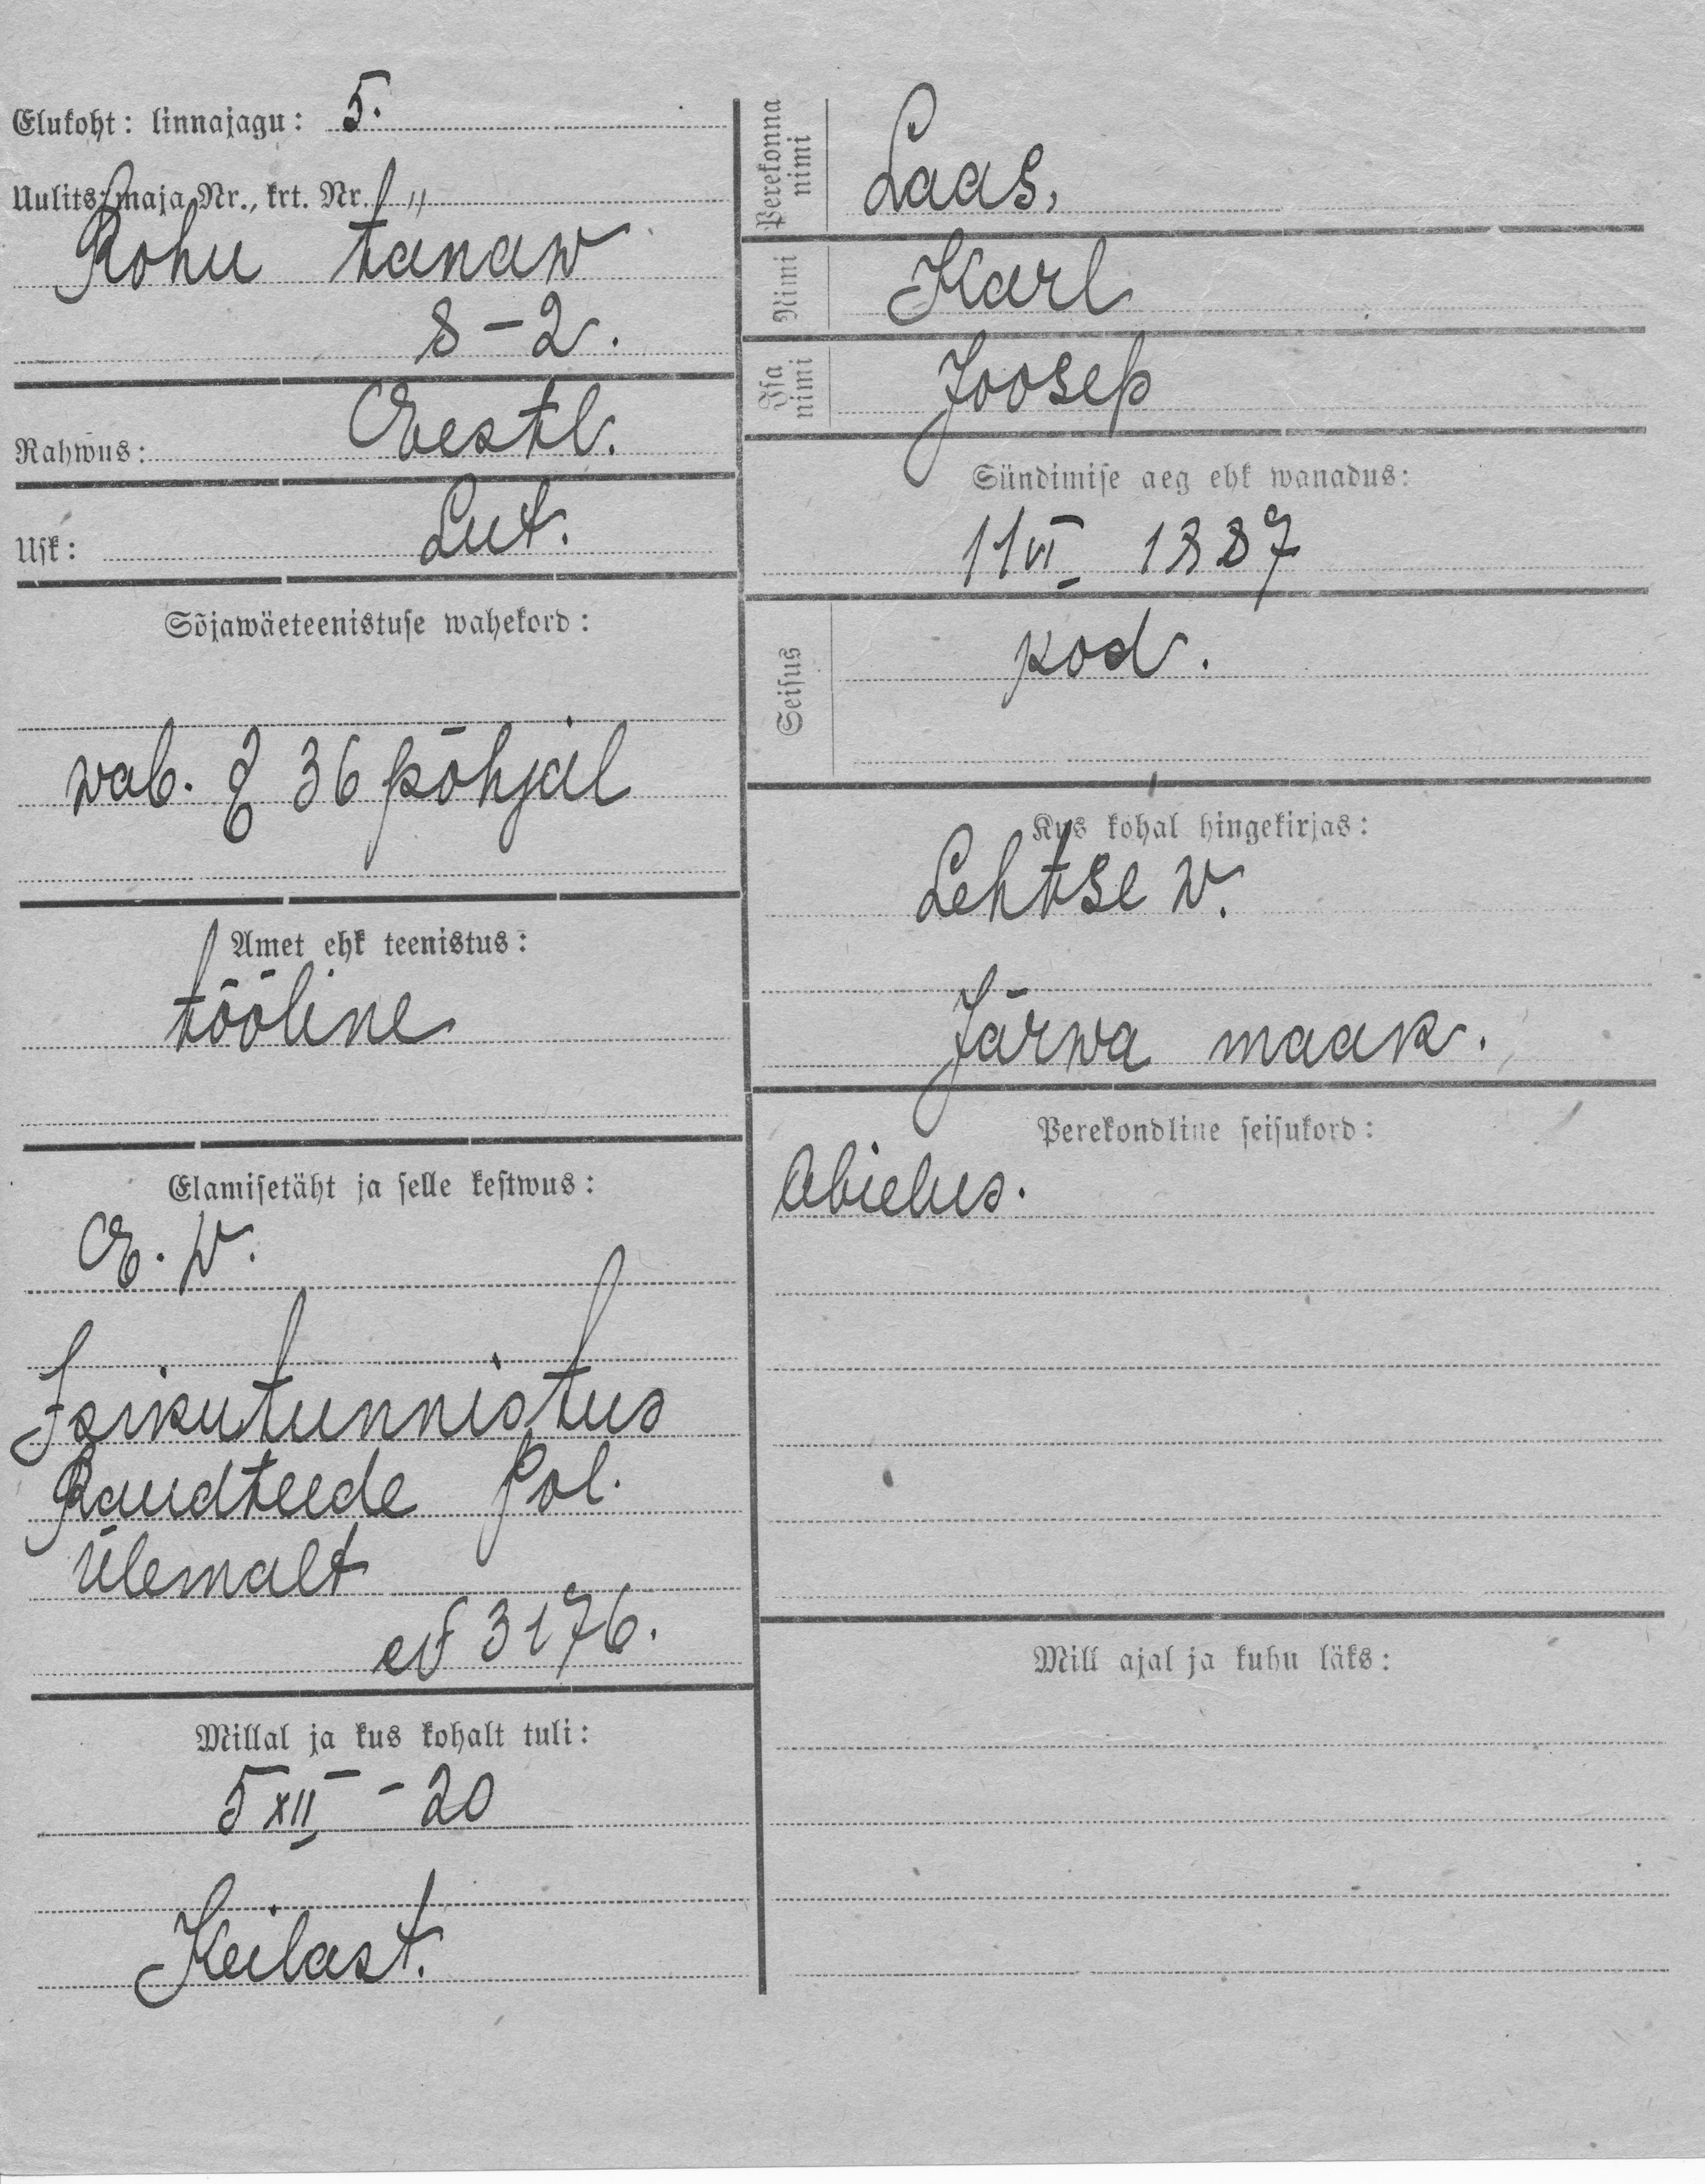 Elukoht: linnajagu: 5.
Uulits, maja Nr., krt. Nr. "
Rohu tänaw
8-2.
Rahwus: Eestl.
Usk: Lut.
Sõjawäeteenistuse wahekord:
wab. § 36 põhjäl
Amet ehk teenistus:
tööline
Elamisetäht ja selle kestwus:
E. W.
Isikutunnistus
Raudteede Pol.
Ülemalt
№ 3176.
Millal ja kus kohalt tuli:
5 XII - 20
Keilast.
Perekonna nimi
Laas,
Nimi
Karl
Isa nimi
Joosep
Sündimise aeg ehk wanadus:
11 VI 1887
Seisus
kod.
Kus kohal hingekirjas:
Lehtse w.
Järwa maak.
Perekondline seisukord:
Abielus.
Mill ajal ja kuhu läks: